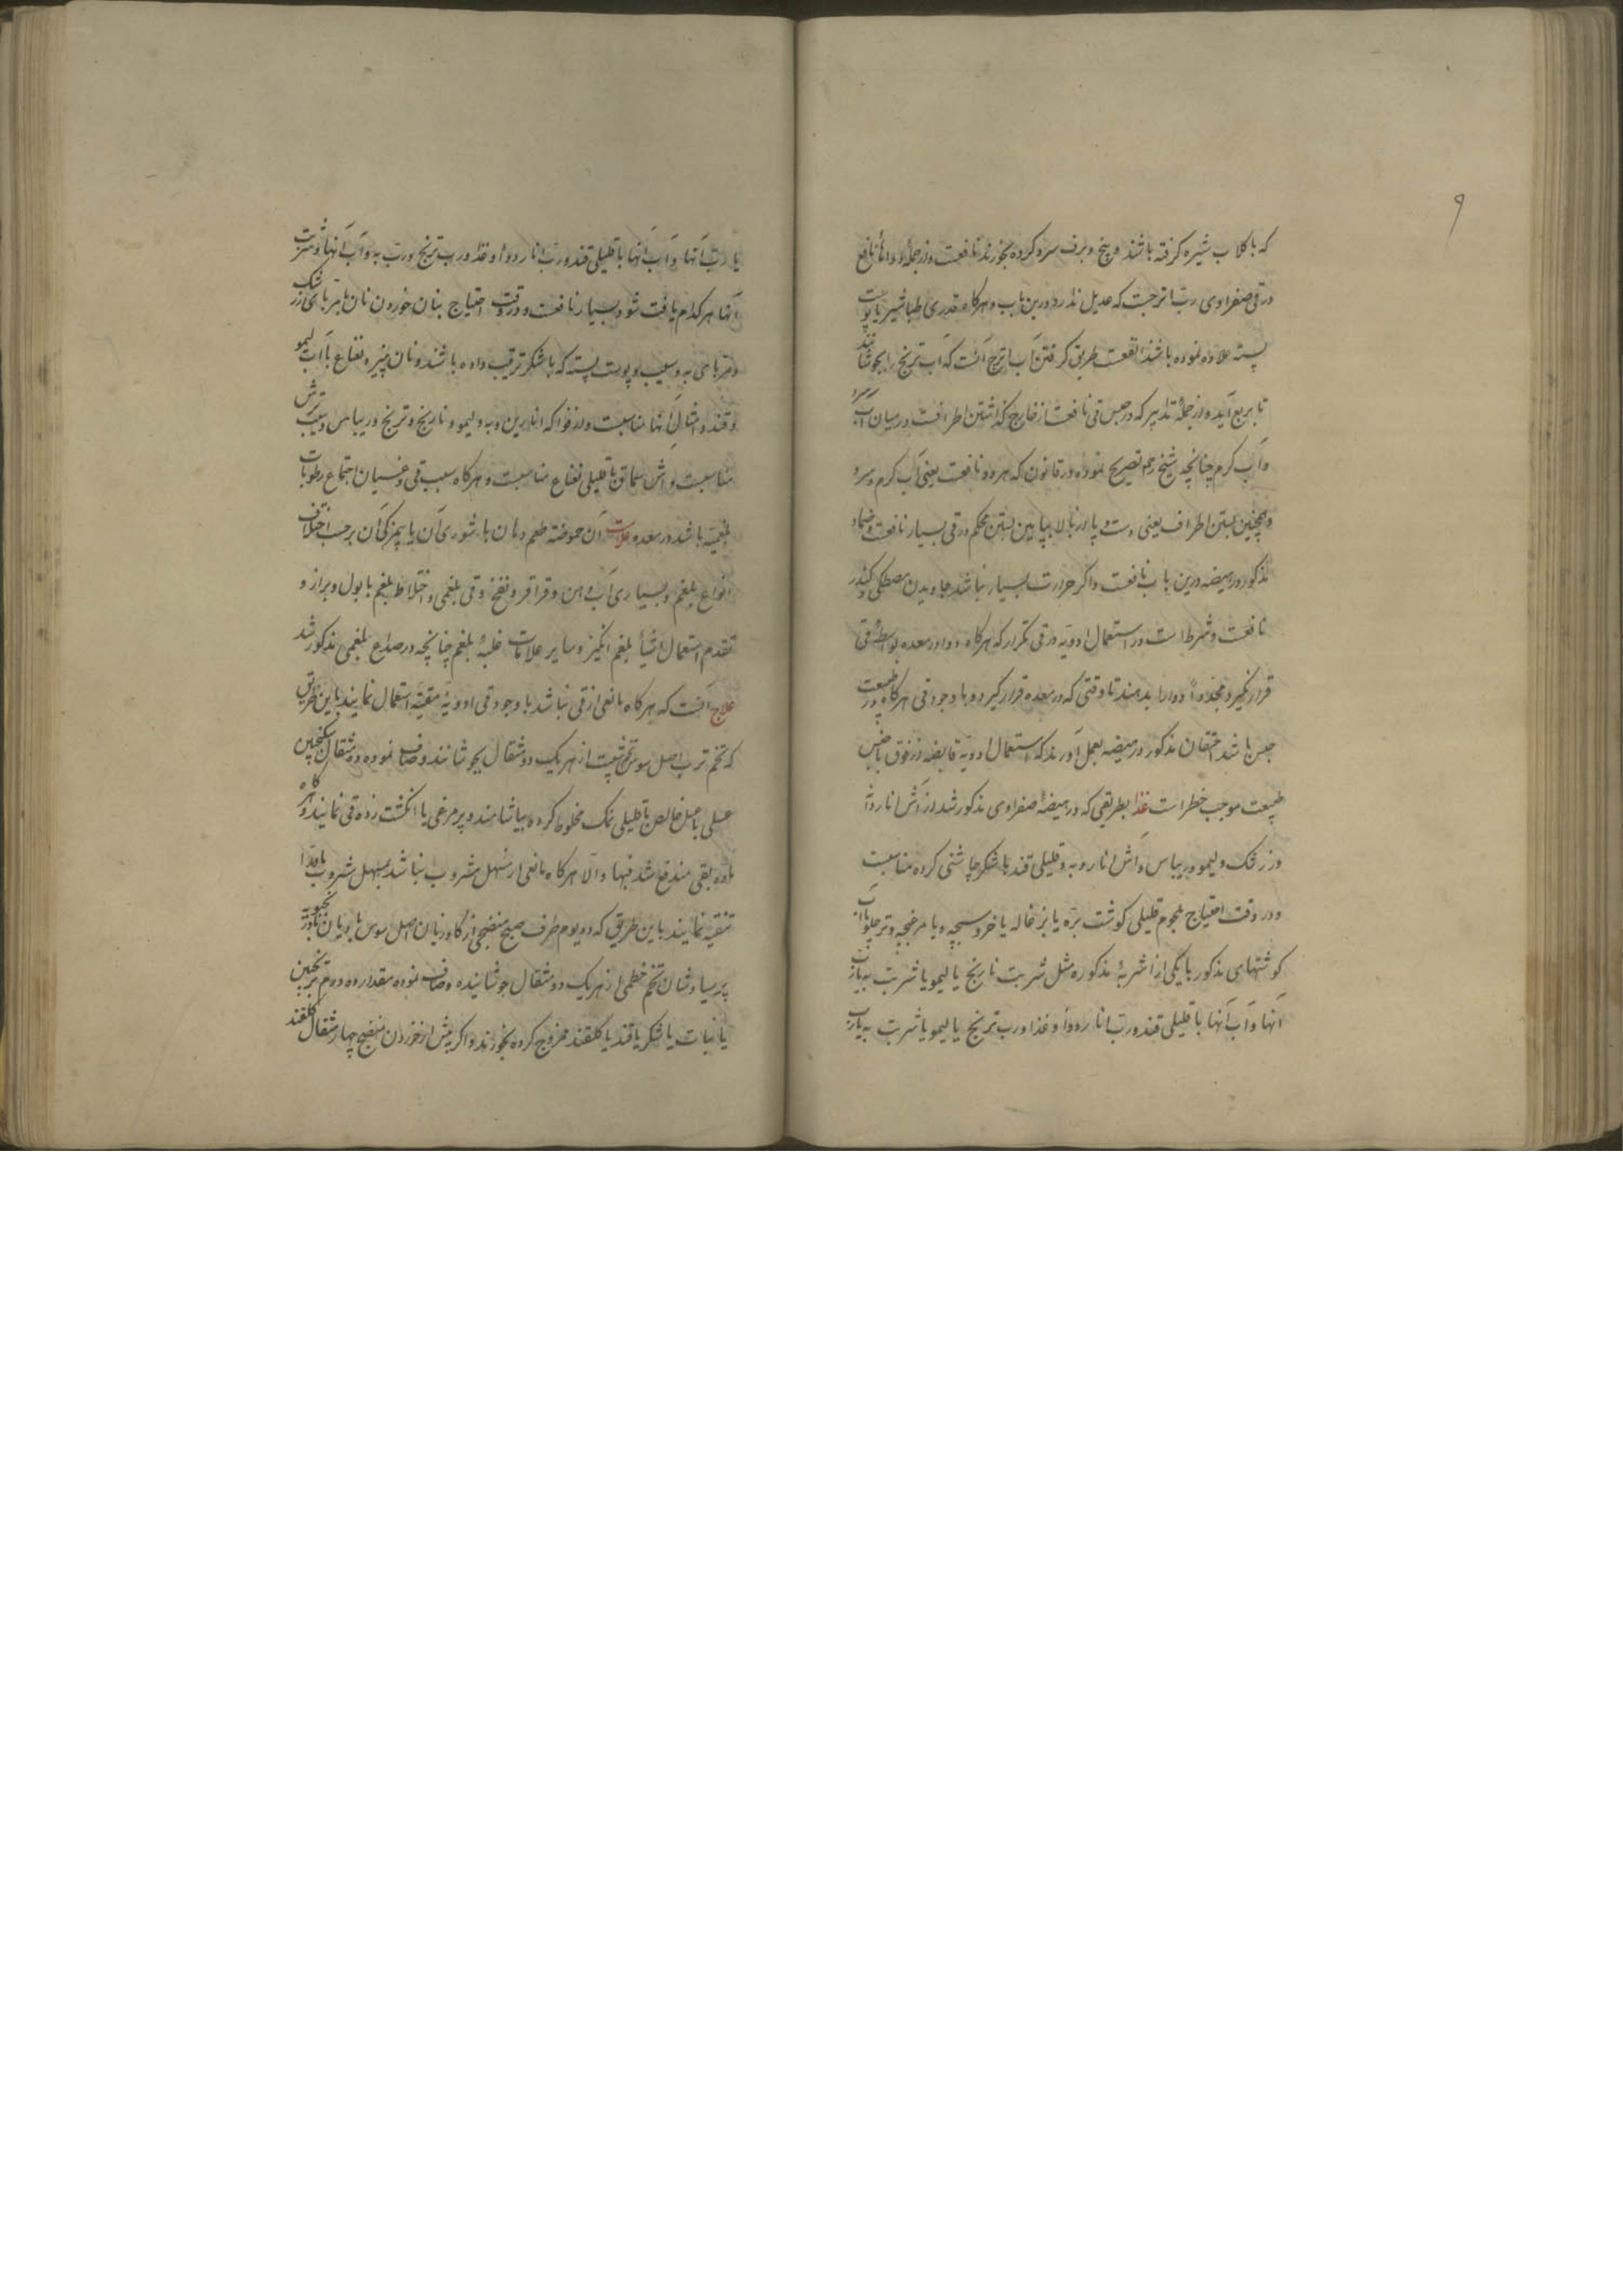 ۹
که با کلاب شیره کرفته باشند و بیخ و برف سرد کرده بخورند نافعست و از جمله دواهای نافع
در قی صفراوی رب اترجست که عدیل ندارد درین باب و هرکاه قدری طباشیر یا پوست
پسته علاوه نموده باشند انفعست طریق کرفتن آب اترج آنست که آب ترنج را بجوشانند
تا بربع آید و از جمله تدابیر که در حبس قی نافعست از خارج کذاشتن اطرافست در میان آب سرد
و آب کرم چنانچه شیخ رحمه تصریح نموده در قانون که هر دو نافعست یعنی آب کرم و سرد
و همچنین بستن اطراف یعنی دست و پا از بالا بپایین بستن محکم در قی بسیار نافعست و ضماد
مذکور در هیضه درین باب نافعست و اکر حرارت بسیار نباشد جاویدن مصطکی و کندر
نافعست و شرط است در استعمال ادویه در قی تکرار که هرکاه دوا در معده بواسطهٔ قی
قرار نکیرد مجدداً دوا را بدهند تا وقتی که در معده قرار کیرد و با وجود قی هرکاه طبیعت
حبس باشد احتقان مذکور در هیضه بعمل آورند که استعمال ادویه قابضه از فوق با حبس
طبیعت موجب خطر است غذا بطریقی که در هیضهٔ صفراوی مذکور شد از آش انار دوا
و زرشک و لیمو و ریباس و آش انار و به و قلیلی قند یا شکر چاشنی کرده مناسبست
و در وقت احتیاج بلحوم قلیلی کوشت بره یا بزغاله یا خروسبچه و یا مرغبچه و تر چلو با آب
کوشتهای مذکور با یکی از اشربهٔ مذکوره مثل شربت نارنج یا لیمو یا شربت به یا رب
آنها و آب آنها با قلیلی قند و رب انار دواً و غذا و رب ترنج یا لیمو یا شربت به یا رب
یا رب آنها و آب آنها با قلیلی قند و رب انار دواً و غذا و رب ترنج و رب به و آب آنها و شربت
آنها هرکدام یافت شود بسیار نافعست و در وقت احتیاج بنان خوردن نان با مربای زرشک
و مربای به و سیب و پوست پسته که با شکر ترتیب داده باشند و نان پنیر و نعناع با آب لیمو
و قند و امثال آنها مناسبست و از فواکه انارین و به و لیمو و نارنج و ترنج و ریباس و سیب ترش
مناسبست و آش سماق با قلیلی نعناع مناسبست و هرکاه سبب قی و غسیان اجتماع رطوبات
بلغمیه باشد در معده علامت آن حموضة طعم دهان یا شوری آن یا بیمزکی آن برحسب اختلاف
انواع بلغم و بسیاری آب دهن و قراقر و نفخ و قی بلغمی و اختلاط بلغم با بول و براز و
تقدم استعمال اشیأ بلغم انکیز و سایر علامات غلبهٔ بلغم چنانچه در صداع بلغمی مذکور شد
علاج آنست که هرکاه مانعی از قی نباشد با وجود قی ادویهٔ مقیئه استعمال نمایند باین طریق
که تخم ترب اصل سوس تخم شبت از هر یک دو مثقال بجوشانند و صاف نموده ده مثقال سکنجبین
عسلی یا عسل خالص با قلیلی نمک مخلوط کرده بیاشامند و پر مرغی یا انکشت زده قی نمایند و هرکاه
ماده بقی مندفع شد فبها و الا هرکاه مانعی از مسهل مشروب نباشد بمسهل مشروب ماده را
تنقیه نمایند باین طریق که ده یوم طرف صبح منضجی از کاوزبان اصل سوس رازیانه بادرنجبویه
پرسیاوشان تخم خطمی از هر یک دو مثقال جوشانیده و صاف نموده مقدار ده درم ترنجبین
یا نبات یا شکر یا قند یا کلقند ممزوج کرده بخورند و اکر پیش از خوردن منضج چهار مثقال کلقند